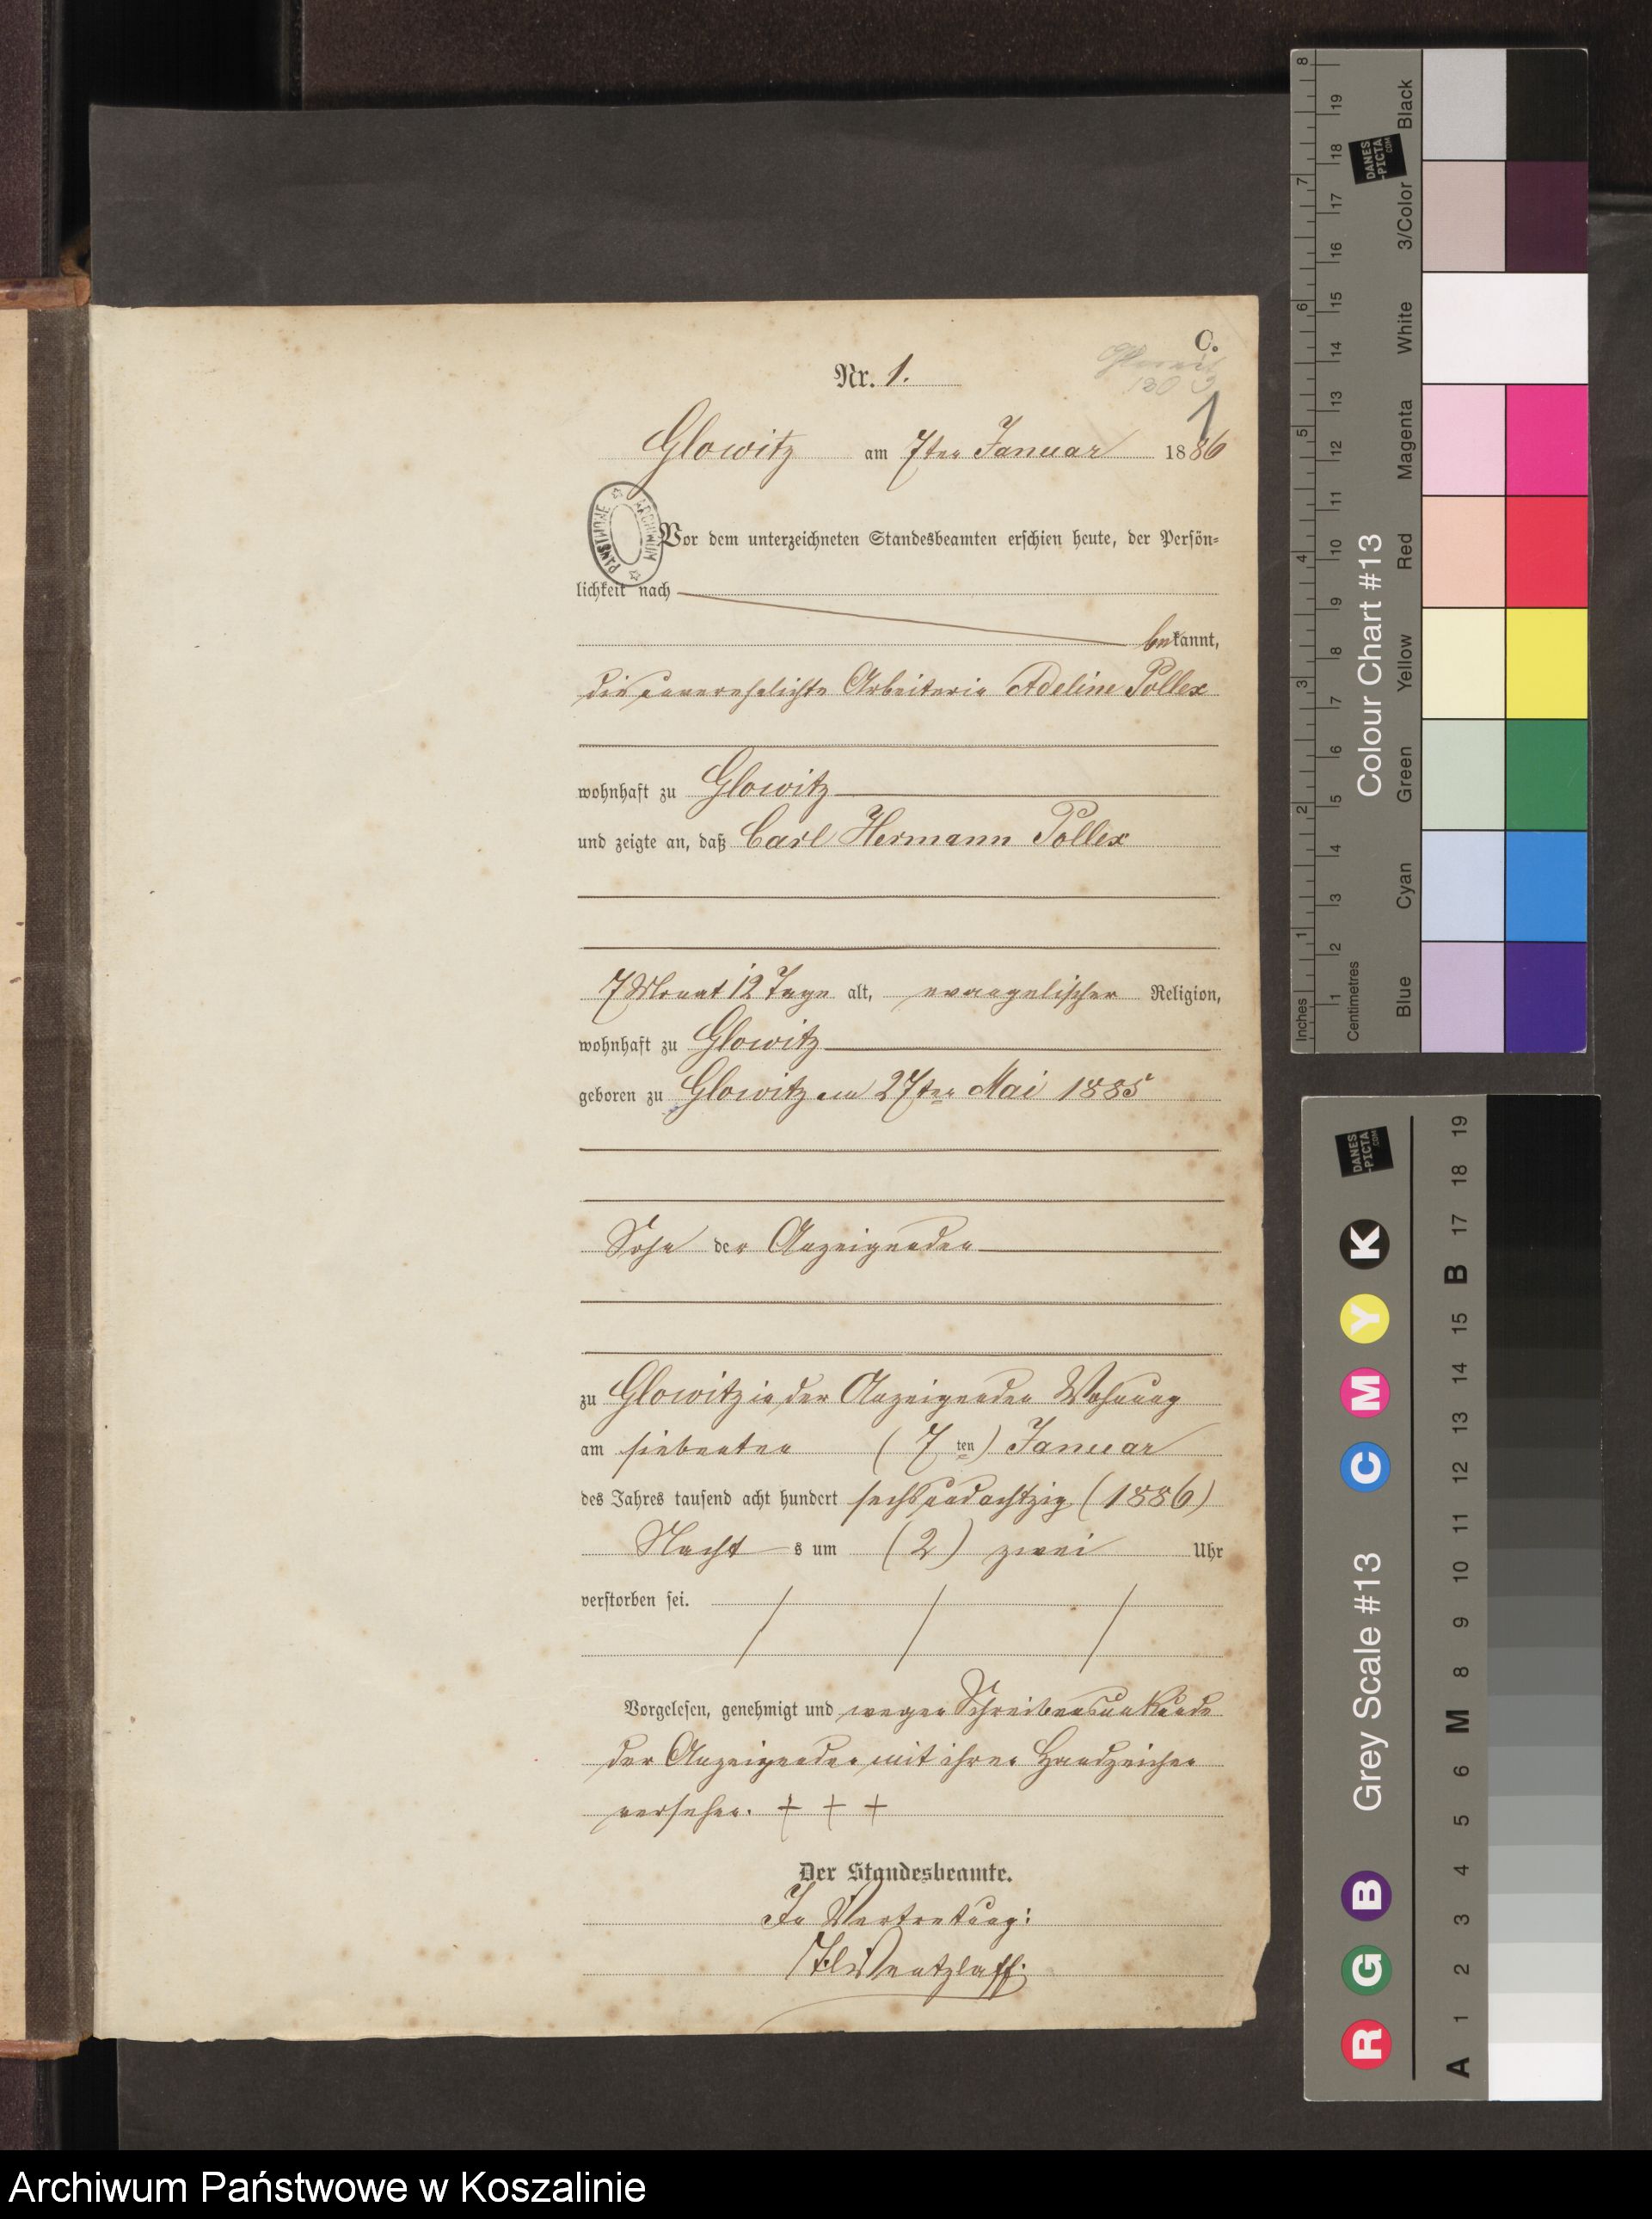 C.
Nr. 1.
1
Glowitz am 7ten Januar 1886
ARCHIWUM PAŃSTWOWE
Vor dem unterzeichneten Standesbeamten erschien heute, der Persön-
lichkeit nach
bekannt,
die unverehelichte Arbeiterin Adeline Pollex
wohnhaft zu Glowitz
und zeigte an, daß Carl Hermann Pollex
7 Monat 12 Tage alt, evangelischer Religion,
wohnhaft zu Glowitz
geboren zu Glowitz am 27ten Mai 1885
Sohn der Anzeigenden
zu Glowitz in der Anzeigenden Wohnung
am siebenten (7 ten) Januar
des Jahres tausend acht hundert sechs und achtzig (1886)
Nacht s um (2) zwei Uhr
verstorben sei.
Vorgelesen, genehmigt und wegen Schreibensunkunde
der Anzeigenden mit ihren Handzeichen
versehen. + + +
Der Standesbeamte.
In Vertretung:
Wentzlaff.
Inches 1 2 3 4 5 6 7 8
Centimetres 1 2 3 4 5 6 7 8 9 10 11 12 13 14 15 16 17 18 19
Colour Chart #13
Blue Cyan Green Yellow Red Magenta White 3/Color Black
DANES
-PICTA
.COM
Grey Scale #13
R G B C M Y K
A 1 2 3 4 5 6 M 8 9 10 11 12 13 14 15 B 17 18 19
DANES
-PICTA
.COM
Archiwum Państwowe w Koszalinie